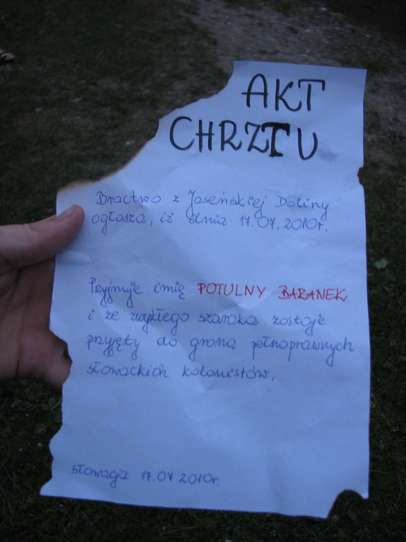 AKT
CHRZTU
Bractwo z Jaseńskiej Doliny
ogłasza, iż dnia 17.07.2010r.
Przyjmuje imię POTULNY BARANEK
i ze zwykłego szaraka zostaje
przyjęty do grona pełnoprawnych
słowackich kolonistów.
Słowacja 17.07.2010r.